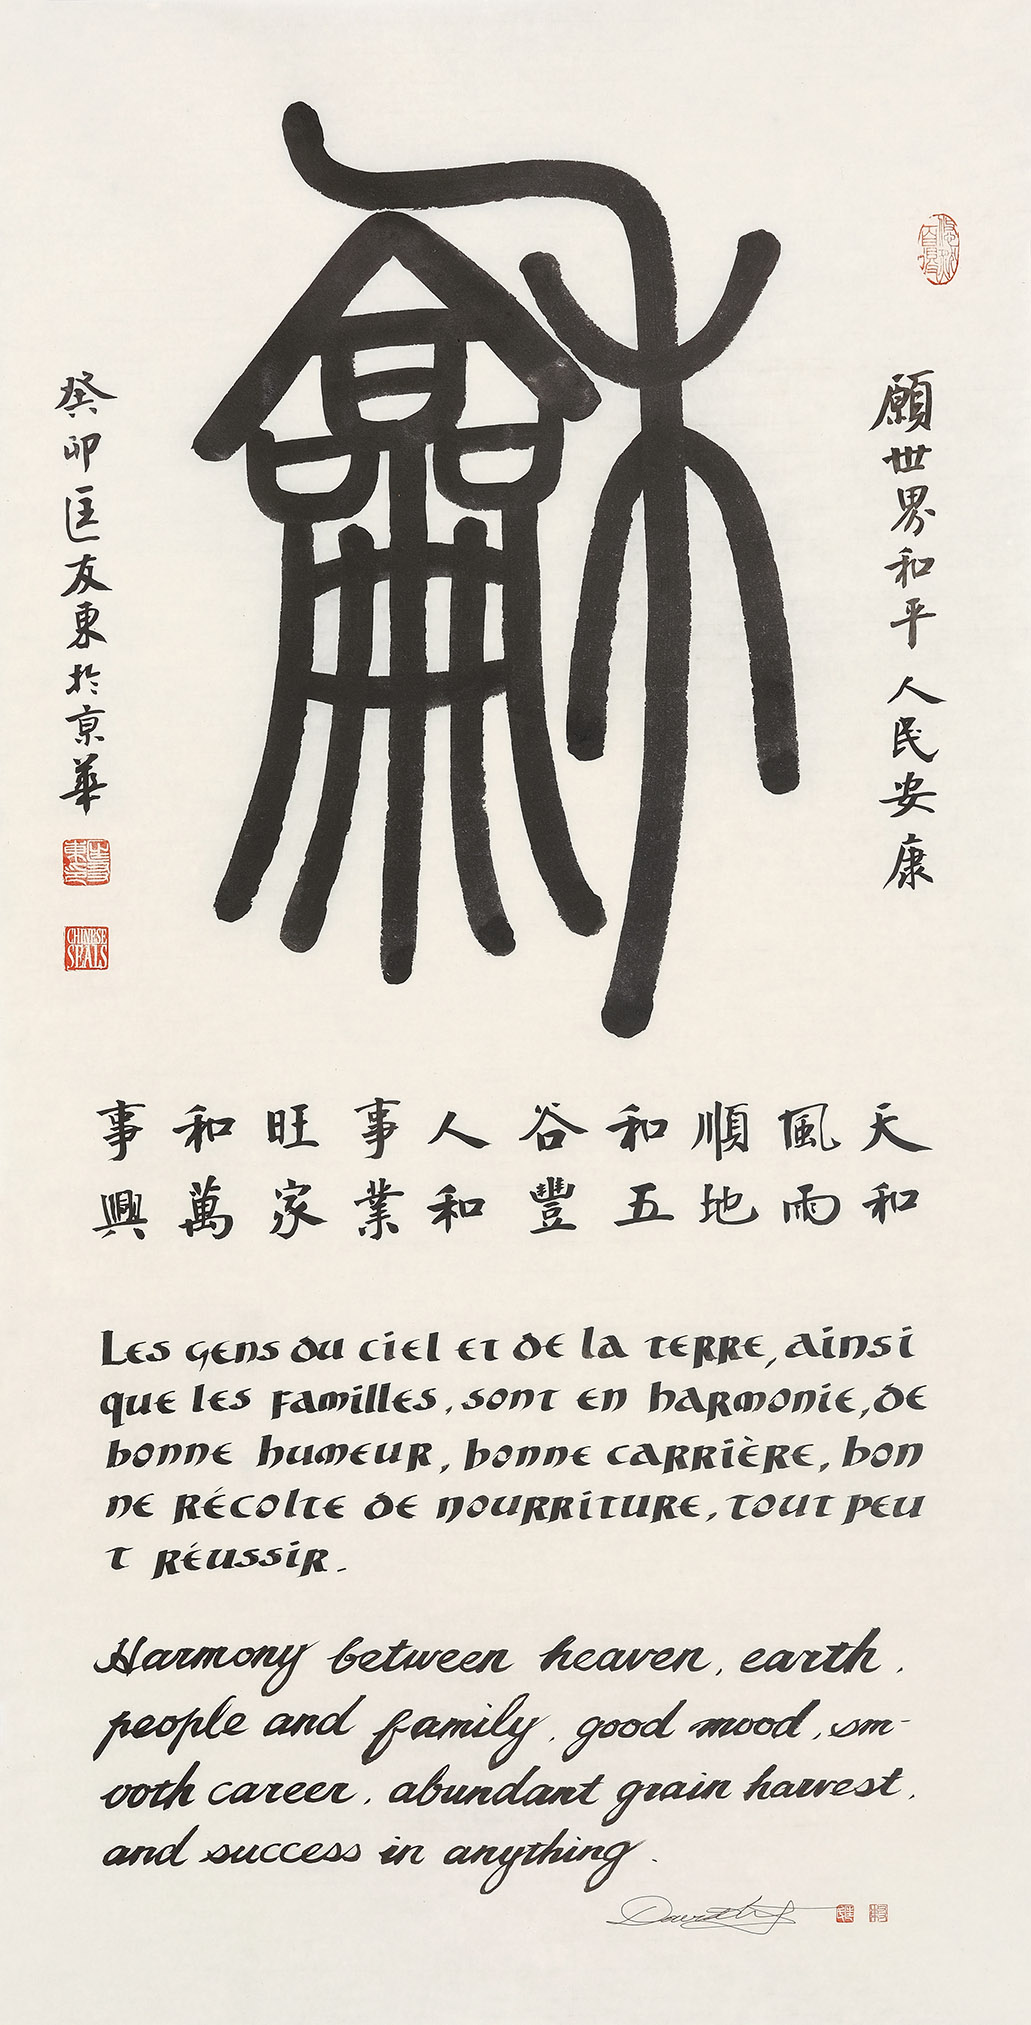 願世界和平 人民安康
龢
癸卯匡友東於京華
CHINESE
SEALS
天和
風雨
順地
和五
谷豐
人和
事業
旺家
和萬
事興
Les gens du ciel et de la terre, ainsi
que les familles, sont en harmonie, de
bonne humeur, bonne carrière, bon
ne récolte de nourriture, tout peu
t réussir.
Harmony between heaven, earth,
people and family, good mood, sm-
ooth career, abundant grain harvest,
and success in anything.